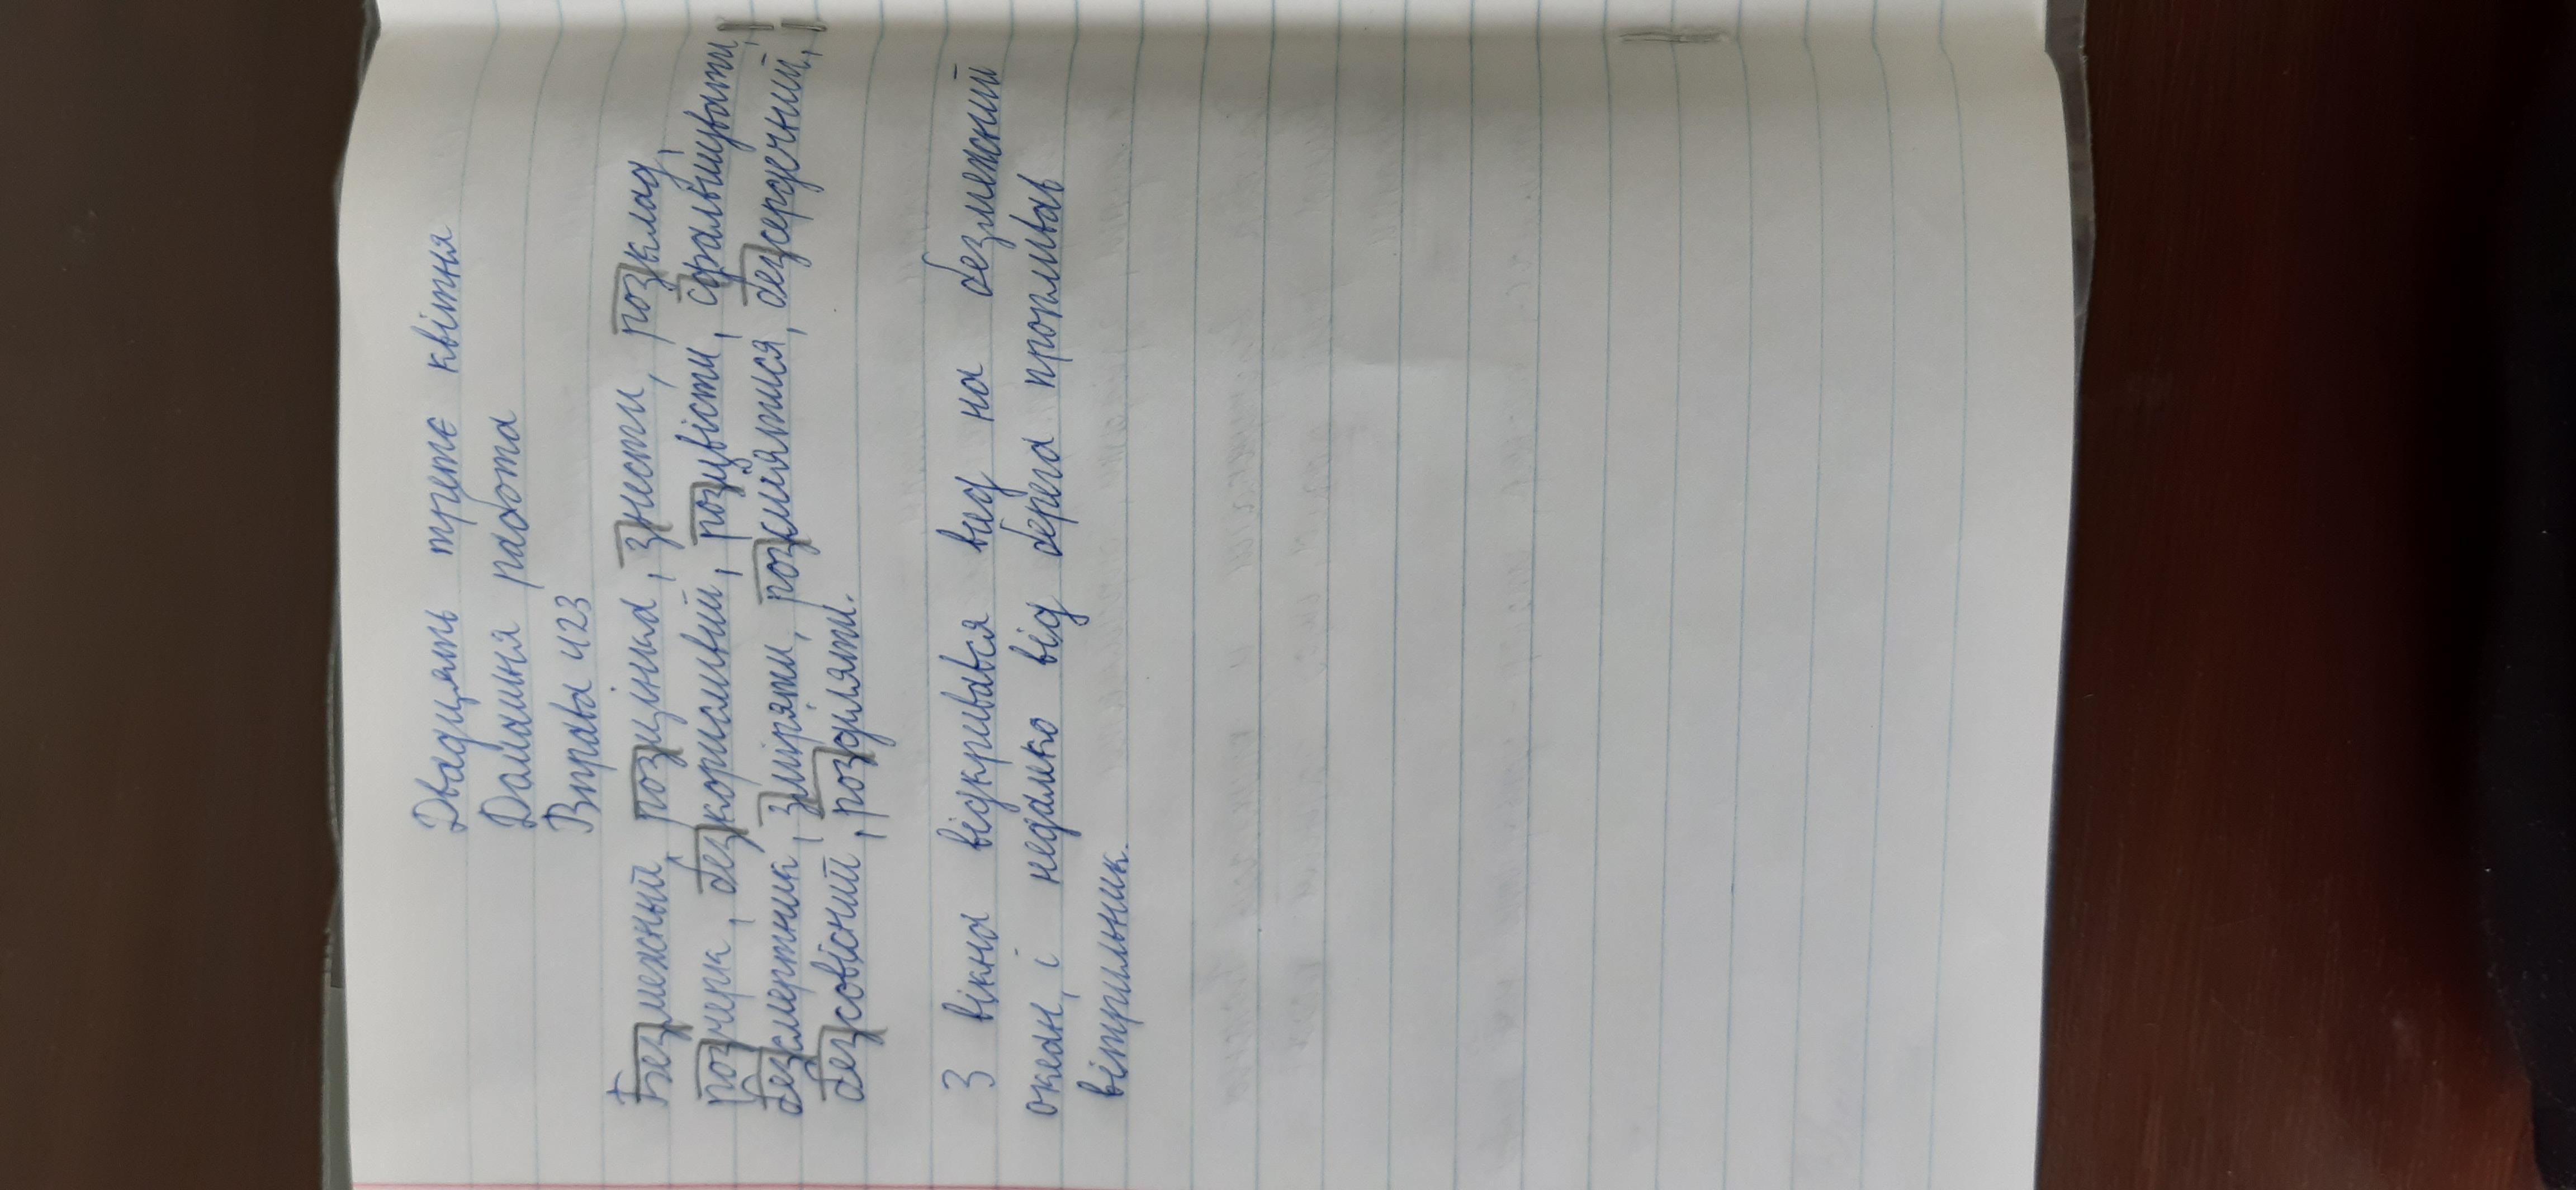 Двадцять третє квітня
Домашня работа
Вправа 423
Безмежный, розцінка, знести, розклад,
розчерк, безкорисливий, розцвісти, сфальшувати,
безсмертник, зміряти, розсміятися, безсердечний,
безсовісний, розділяти.
З вікна відкривався вид на безмежний
океан, і недалеко від берега пропливав
вітрильник.